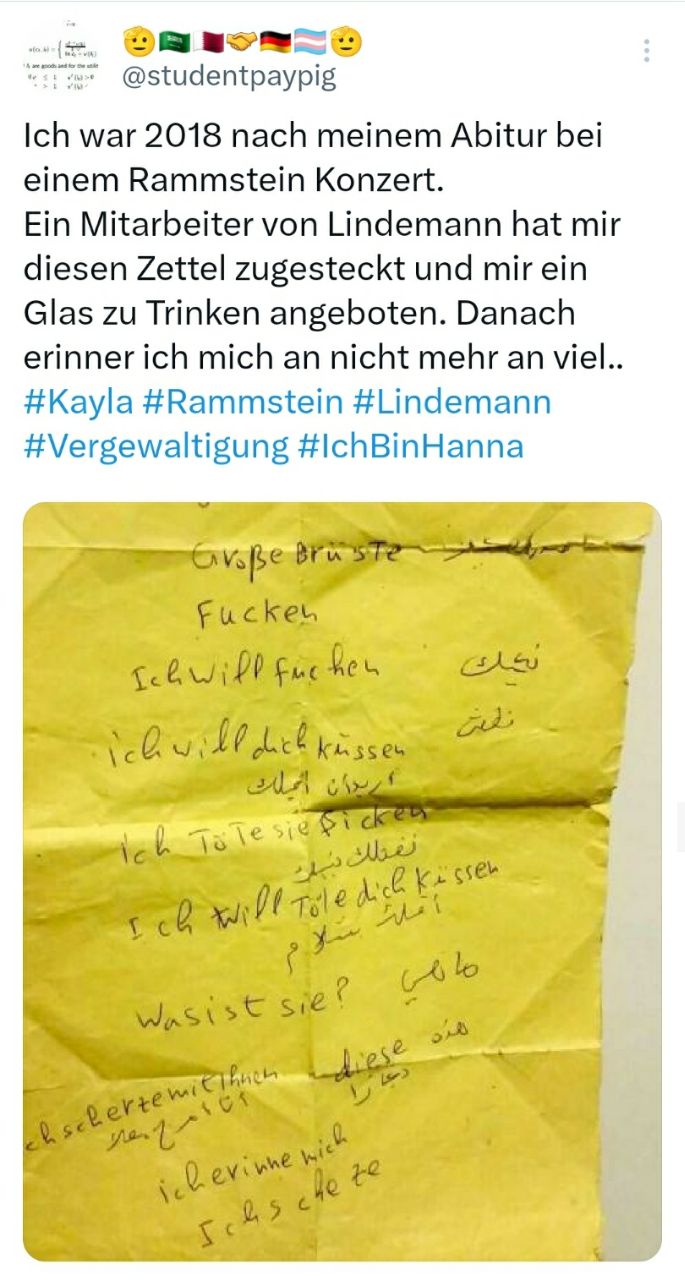 🫡🇸🇦🇶🇦🤝🇩🇪🏳️‍⚧️🫡
@studentpaypig
Ich war 2018 nach meinem Abitur bei
einem Rammstein Konzert.
Ein Mitarbeiter von Lindemann hat mir
diesen Zettel zugesteckt und mir ein
Glas zu Trinken angeboten. Danach
erinner ich mich an nicht mehr an viel..
#Kayla #Rammstein #Lindemann
#Vergewaltigung #IchBinHanna
Große Brüste
Fucken
Ich will fucken
ich will dich küssen
ich Töte sie ficken
Ich will Töte dich küssen
was ist sie? ماهي
diese هذه
ch scherze mit Ihnen
ich erinne mich
Ich scheze